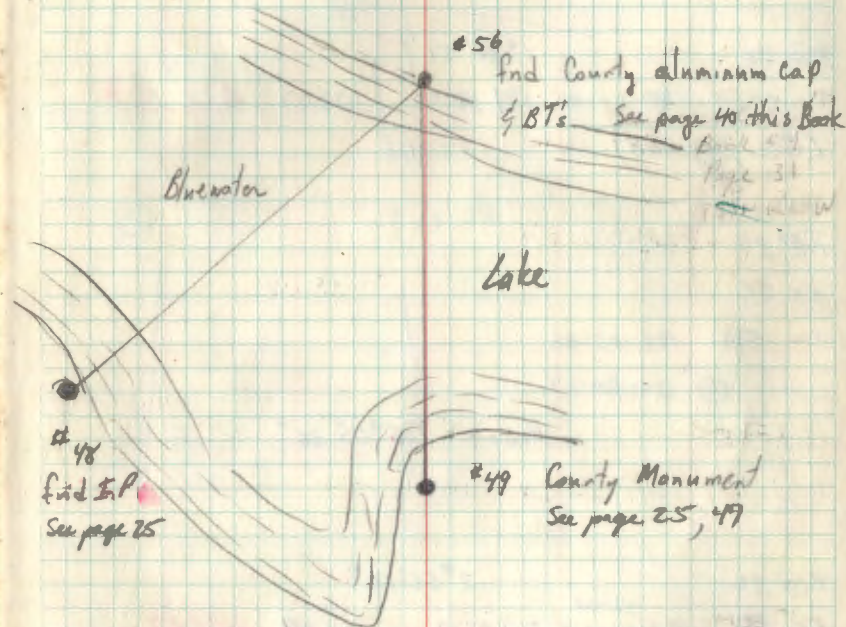 #56
fnd County aluminum cap
& BT's See page 40 this Book
Page 31
Bluewater
Lake
#48
fnd I.P
See page 25
#49 County Manument
See page 25, 49